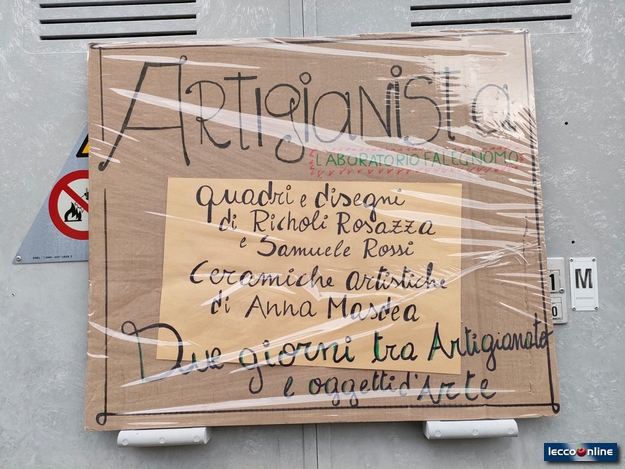 Artigianista
LABORATORIO FALEGNOMO
quadri e disegni
di Richoli Rosazza
e Samuele Rossi
Ceramiche artistiche
di Anna Masdea
Due giorni tra Artigianato
e oggetti d'Arte
1 M
0
leccoonline